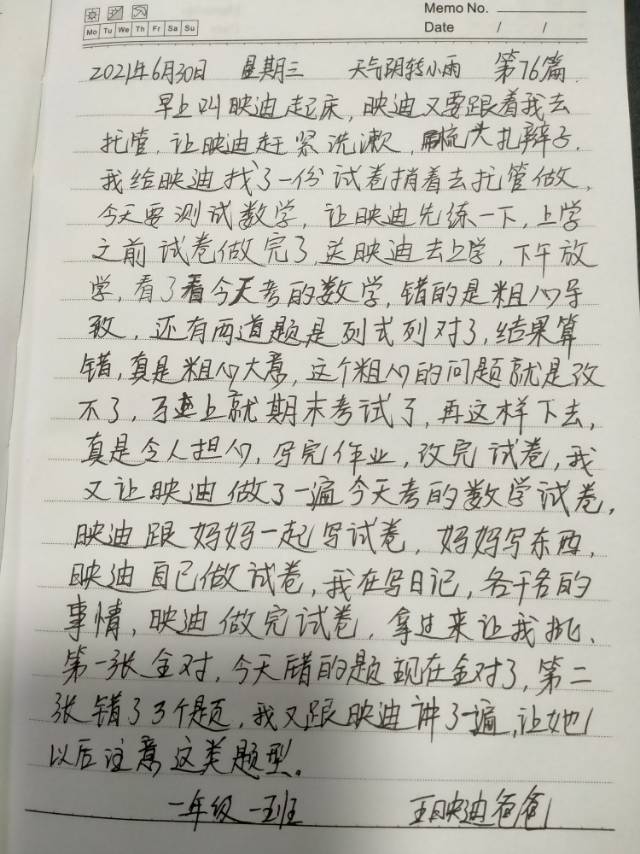 Memo No.
Mo Tu We Th Fr Sa Su
Date / /
2021年6月30日 星期三 天气阴转小雨 第76篇.
早上叫映迪起床,映迪又要跟着我去
托管,让映迪赶紧洗漱,梳头扎辫子.
我给映迪找了一份试卷捎着去托管做,
今天要测试数学,让映迪先练一下,上学
之前试卷做完了,送映迪去上学,下午放
学,看了看今天考的数学,错的是粗心导
致,还有两道题是列式列对了,结果算
错,真是粗心大意,这个粗心的问题就是改
不了,马上就期末考试了,再这样下去,
真是令人担心,写完作业,改完试卷,我
又让映迪做了一遍今天考的数学试卷,
映迪跟妈妈一起写试卷,妈妈写东西,
映迪自己做试卷,我在写日记,各干各的
事情,映迪做完试卷,拿过来让我批、
第一张全对,今天错的题现在全对了,第二
张错了3个题,我又跟映迪讲了一遍,让她
以后注意这类题型。
一年级一班 王映迪爸爸